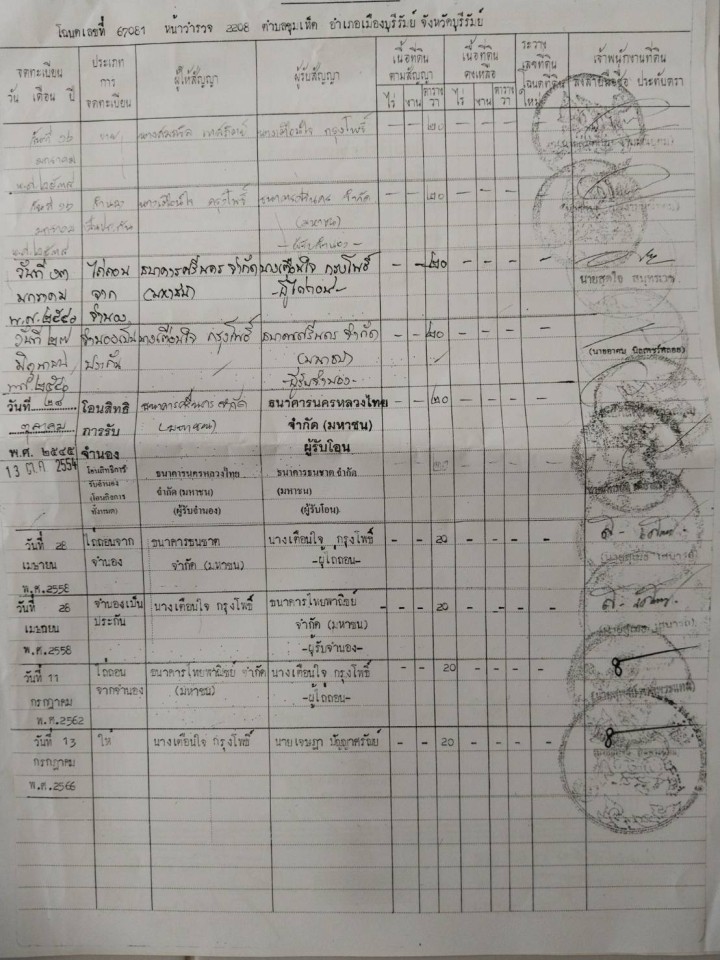 โฉนดเลขที่ 67081 หน้าสำรวจ 2208 ตำบลชุมเห็ด อำเภอเมืองบุรีรัมย์ จังหวัดบุรีรัมย์
จดทะเบียน
วัน เดือน ปี
ประเภท
การ
จดทะเบียน
ผู้ให้สัญญา
ผู้รับสัญญา
เนื้อที่ดิน
ตามสัญญา
ไร่ งาน ตารางวา
เนื้อที่ดิน
คงเหลือ
ไร่ งาน ตารางวา
ระวาง
เลขที่ดิน
โฉนดที่ดิน
ใหม่
เจ้าพนักงานที่ดิน
ลงลายมือชื่อ ประทับตรา
วันที่ ๑๖ ขาย นางเตือนใจ กรุงโพธิ์ - - 20 - - - -
มกราคม
จำนอง นางเตือนใจ กรุงโพธิ์ ธนาคารศรีนคร จำกัด - - 20 - - - -
มกราคม เป็นประกัน (มหาชน)
-ผู้รับจำนอง-
วันที่ ๒๓ ไถ่ถอน ธนาคารศรีนคร จำกัด นางเตือนใจ กรุงโพธิ์ - - 20 - - - -
มกราคม จาก (มหาชน) -ผู้ไถ่ถอน-
พ.ศ.๒๕๔๐ จำนอง
วันที่ ๒๗ จำนองเป็น นางเตือนใจ กรุงโพธิ์ ธนาคารศรีนคร จำกัด - - 20 - - - -
มิถุนายน ประกัน (มหาชน)
พ.ศ.๒๕๔๐ -ผู้รับจำนอง-
วันที่ ๒๘ โอนสิทธิ ธนาคารศรีนคร จำกัด ธนาคารนครหลวงไทย - - 20 - - - -
ตุลาคม การรับ (มหาชน) จำกัด (มหาชน)
พ.ศ. ๒๕๔๕ จำนอง ผู้รับโอน
13 ต.ค. 2554 โอนสิทธิการ ธนาคารนครหลวงไทย ธนาคารธนชาต จำกัด - - 20 - - - -
รับจำนอง จำกัด (มหาชน) (มหาชน)
(โอนกิจการ (ผู้รับจำนอง) (ผู้รับโอน)
ทั้งหมด)
วันที่ 28 ไถ่ถอนจาก ธนาคารธนชาต นางเตือนใจ กรุงโพธิ์ - - 20 - - - -
เมษายน จำนอง จำกัด (มหาชน) -ผู้ไถ่ถอน-
พ.ศ.2558
วันที่ 28 จำนองเป็น นางเตือนใจ กรุงโพธิ์ ธนาคารไทยพาณิชย์ - - 20 - - - -
เมษายน ประกัน จำกัด (มหาชน)
พ.ศ.2558 -ผู้รับจำนอง-
วันที่ 11 ไถ่ถอน ธนาคารไทยพาณิชย์ จำกัด นางเตือนใจ กรุงโพธิ์ - - 20 - - - -
กรกฎาคม จากจำนอง (มหาชน) -ผู้ไถ่ถอน-
พ.ศ.2562
วันที่ 13 ให้ นางเตือนใจ กรุงโพธิ์ นายเจษฎา - - 20 - - - -
กรกฎาคม
พ.ศ.2566